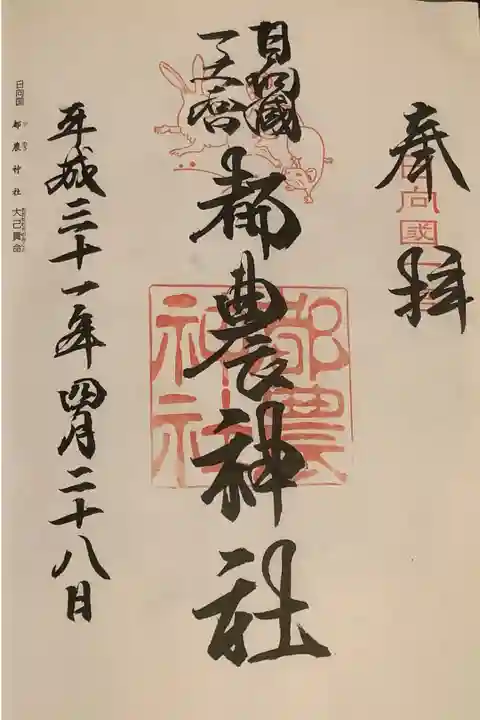 奉拝
日向國一
日向國
一之宮
都農神社
都農
神社
平成三十一年四月二十八日
日向国 都農神社 大己貴命